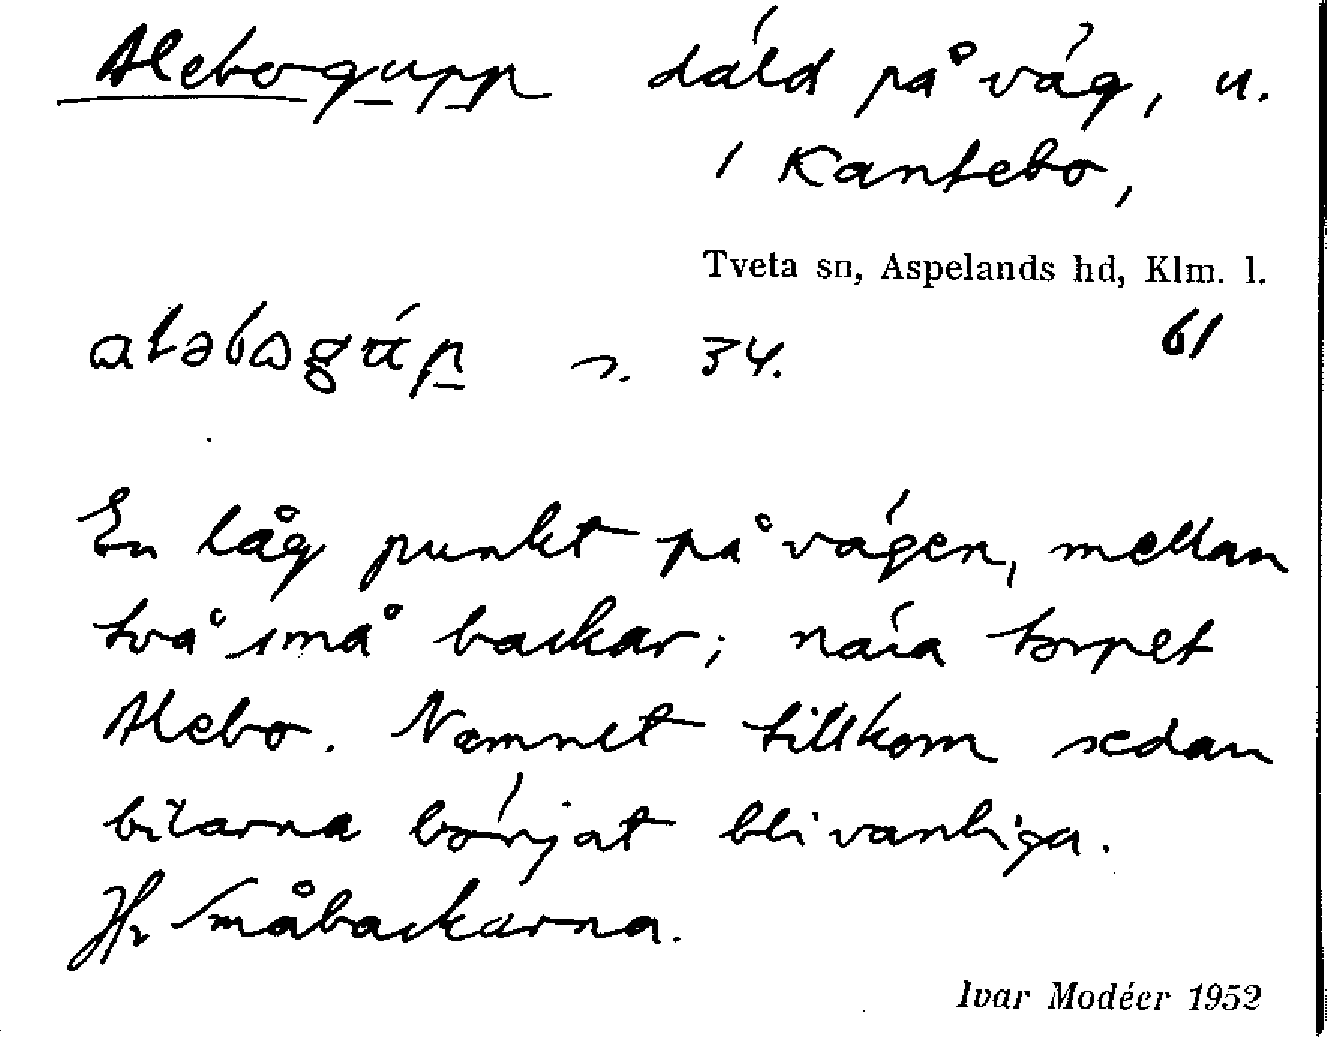 Alebogupp däld på väg, u.
i Kantebo,
Tveta sn, Aspelands hd, Klm. l.
s. 34. 61
En låg punkt på vägen, mellan
två små backar; nära torpet
Alebo. Namnet tillkom sedan
bilarna börjat bli vanliga.
Jfr Småbackarna.
Ivar Modéer 1952